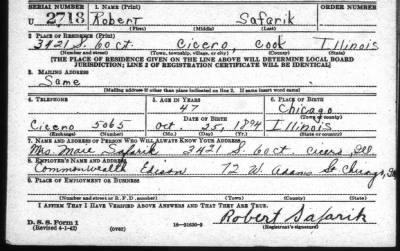 SERIAL NUMBER 1. NAME (Print) ORDER NUMBER
U 2718 Robert Safarik
(First) (Middle) (Last)
2. PLACE OF RESIDENCE (Print)
3421 S. 60 ct. Cicero, Cook Illinois
(Number and street) (Town, township, village, or city) (County) (State)
[THE PLACE OF RESIDENCE GIVEN ON THE LINE ABOVE WILL DETERMINE LOCAL BOARD
JURISDICTION; LINE 2 OF REGISTRATION CERTIFICATE WILL BE IDENTICAL]
3. MAILING ADDRESS
Same
[Mailing address if other than place indicated on line 2. If same insert word same]
4. TELEPHONE 5. AGE IN YEARS 6. PLACE OF BIRTH
47 Chicago
(Town or county)
Cicero 5065 Oct 25, 1894 Illinois
(Exchange) (Number) (Mo.) (Day) (Yr.) (State or country)
7. NAME AND ADDRESS OF PERSON WHO WILL ALWAYS KNOW YOUR ADDRESS
Mrs. Marie Safarik 3421 S. 60 Ct Cicero, Ill
8. EMPLOYER'S NAME AND ADDRESS
Commonwealth Edison 72 W. Adams St Chicago, Ill
9. PLACE OF EMPLOYMENT OR BUSINESS
(Number and street or R. F. D. number) (Town) (County) (State)
I AFFIRM THAT I HAVE VERIFIED ABOVE ANSWERS AND THAT THEY ARE TRUE.
D. S. S. Form 1
(Revised 4-1-42) (over) 16—21630-2 Robert Safarik
(Registrant's signature)